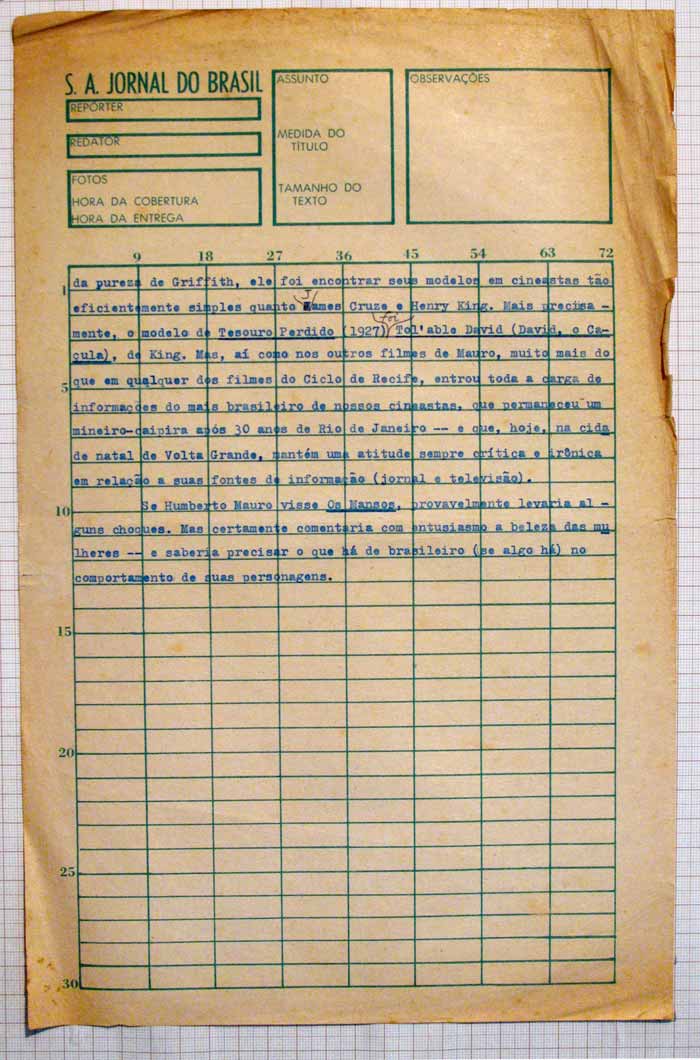 S. A. JORNAL DO BRASIL
REPÓRTER
REDATOR
FOTOS
HORA DA COBERTURA
HORA DA ENTREGA
ASSUNTO
MEDIDA DO
TÍTULO
TAMANHO DO
TEXTO
OBSERVAÇÕES
9 18 27 36 45 54 63 72
1
5
10
15
20
25
30
da pureza de Griffith, ele foi encontrar seus modelos em cineastas tão
eficientemente simples quanto James Cruze e Henry King. Mais precisa -
mente, o modelo de Tesouro Perdido (1927) foi Tol'able David (David, o Ca-
çula), de King. Mas, aí como nos outros filmes de Mauro, muito mais do
que em qualquer dos filmes do Ciclo de Recife, entrou toda a carga de
informações do mais brasileiro de nossos cineastas, que permaneceu um
mineiro-caipira após 30 anos de Rio de Janeiro -- e que, hoje, na cida
de natal de Volta Grande, mantém uma atitude sempre crítica e irônica
em relação a suas fontes de informação (jornal e televisão).
Se Humberto Mauro visse Os Mansos, provavelmente levaria al -
guns choques. Mas certamente comentaria com entusiasmo a beleza das mu
lheres -- e saberia precisar o que há de brasileiro (se algo há) no
comportamento de suas personagens.